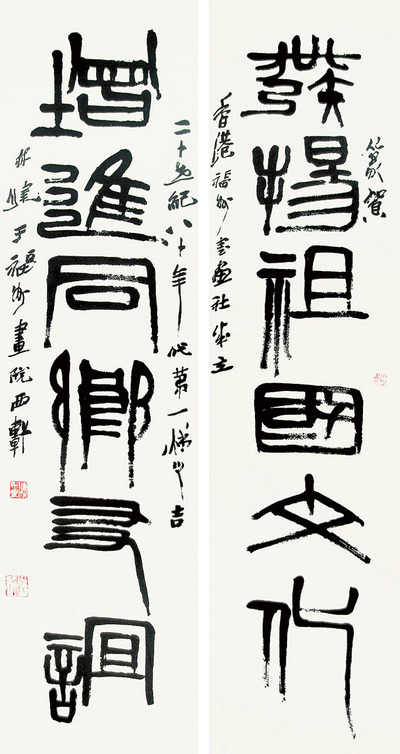 篆賀
發揚祖國文化
香港福州書畫社成立
二十世紀八十年代第一吉
增進同鄉友誼
林健于福州畫院西軒